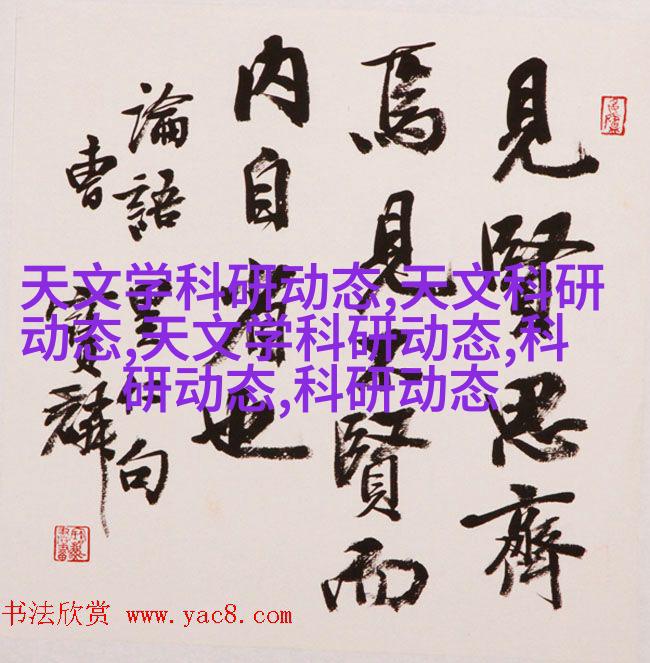 見賢思齊
焉見不賢而
内自省也
論語里仁句
曹寶麟
天文学科研动态,天文科研
动态,天文学科研动态,科
研动态,科研动态
书法欣赏 www.yac8.com